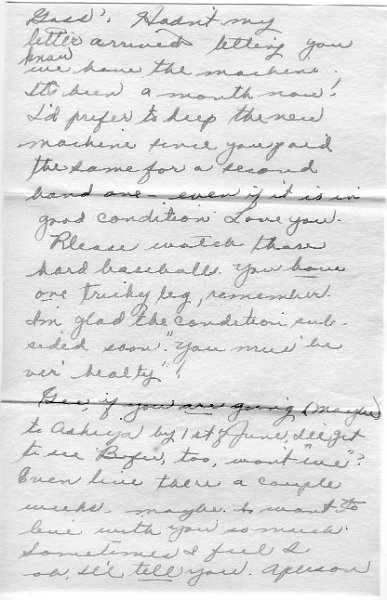 Gass'? Hadn't my
letter arrived letting you
know
we have the machine.
It's been a month now!
I'd prefer to keep the new
machine since you paid
the same for a second
hand one - even if it is in
good condition. Love you.
Please watch those
hard baseballs. You have
one tricky leg, remember.
I'm glad the condition sub-
sided soon. "You mus' be
ver' healty"!
Gee, if you are going (maybe)
to Ashiya by 1st of June, I'll get
to see too, won't "we"?
Even live there a couple
weeks - maybe. I want to
live with you so much.
Sometimes I feel I
oh, I'll tell you. A person